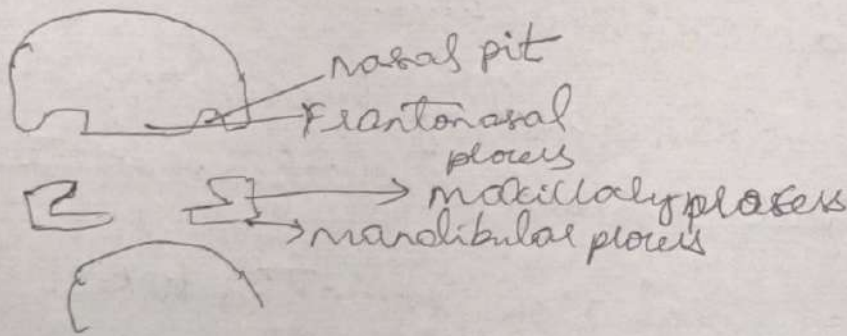 nasal pit
Frantonasal
plocess
maxillaly plosess
mandibular plocess